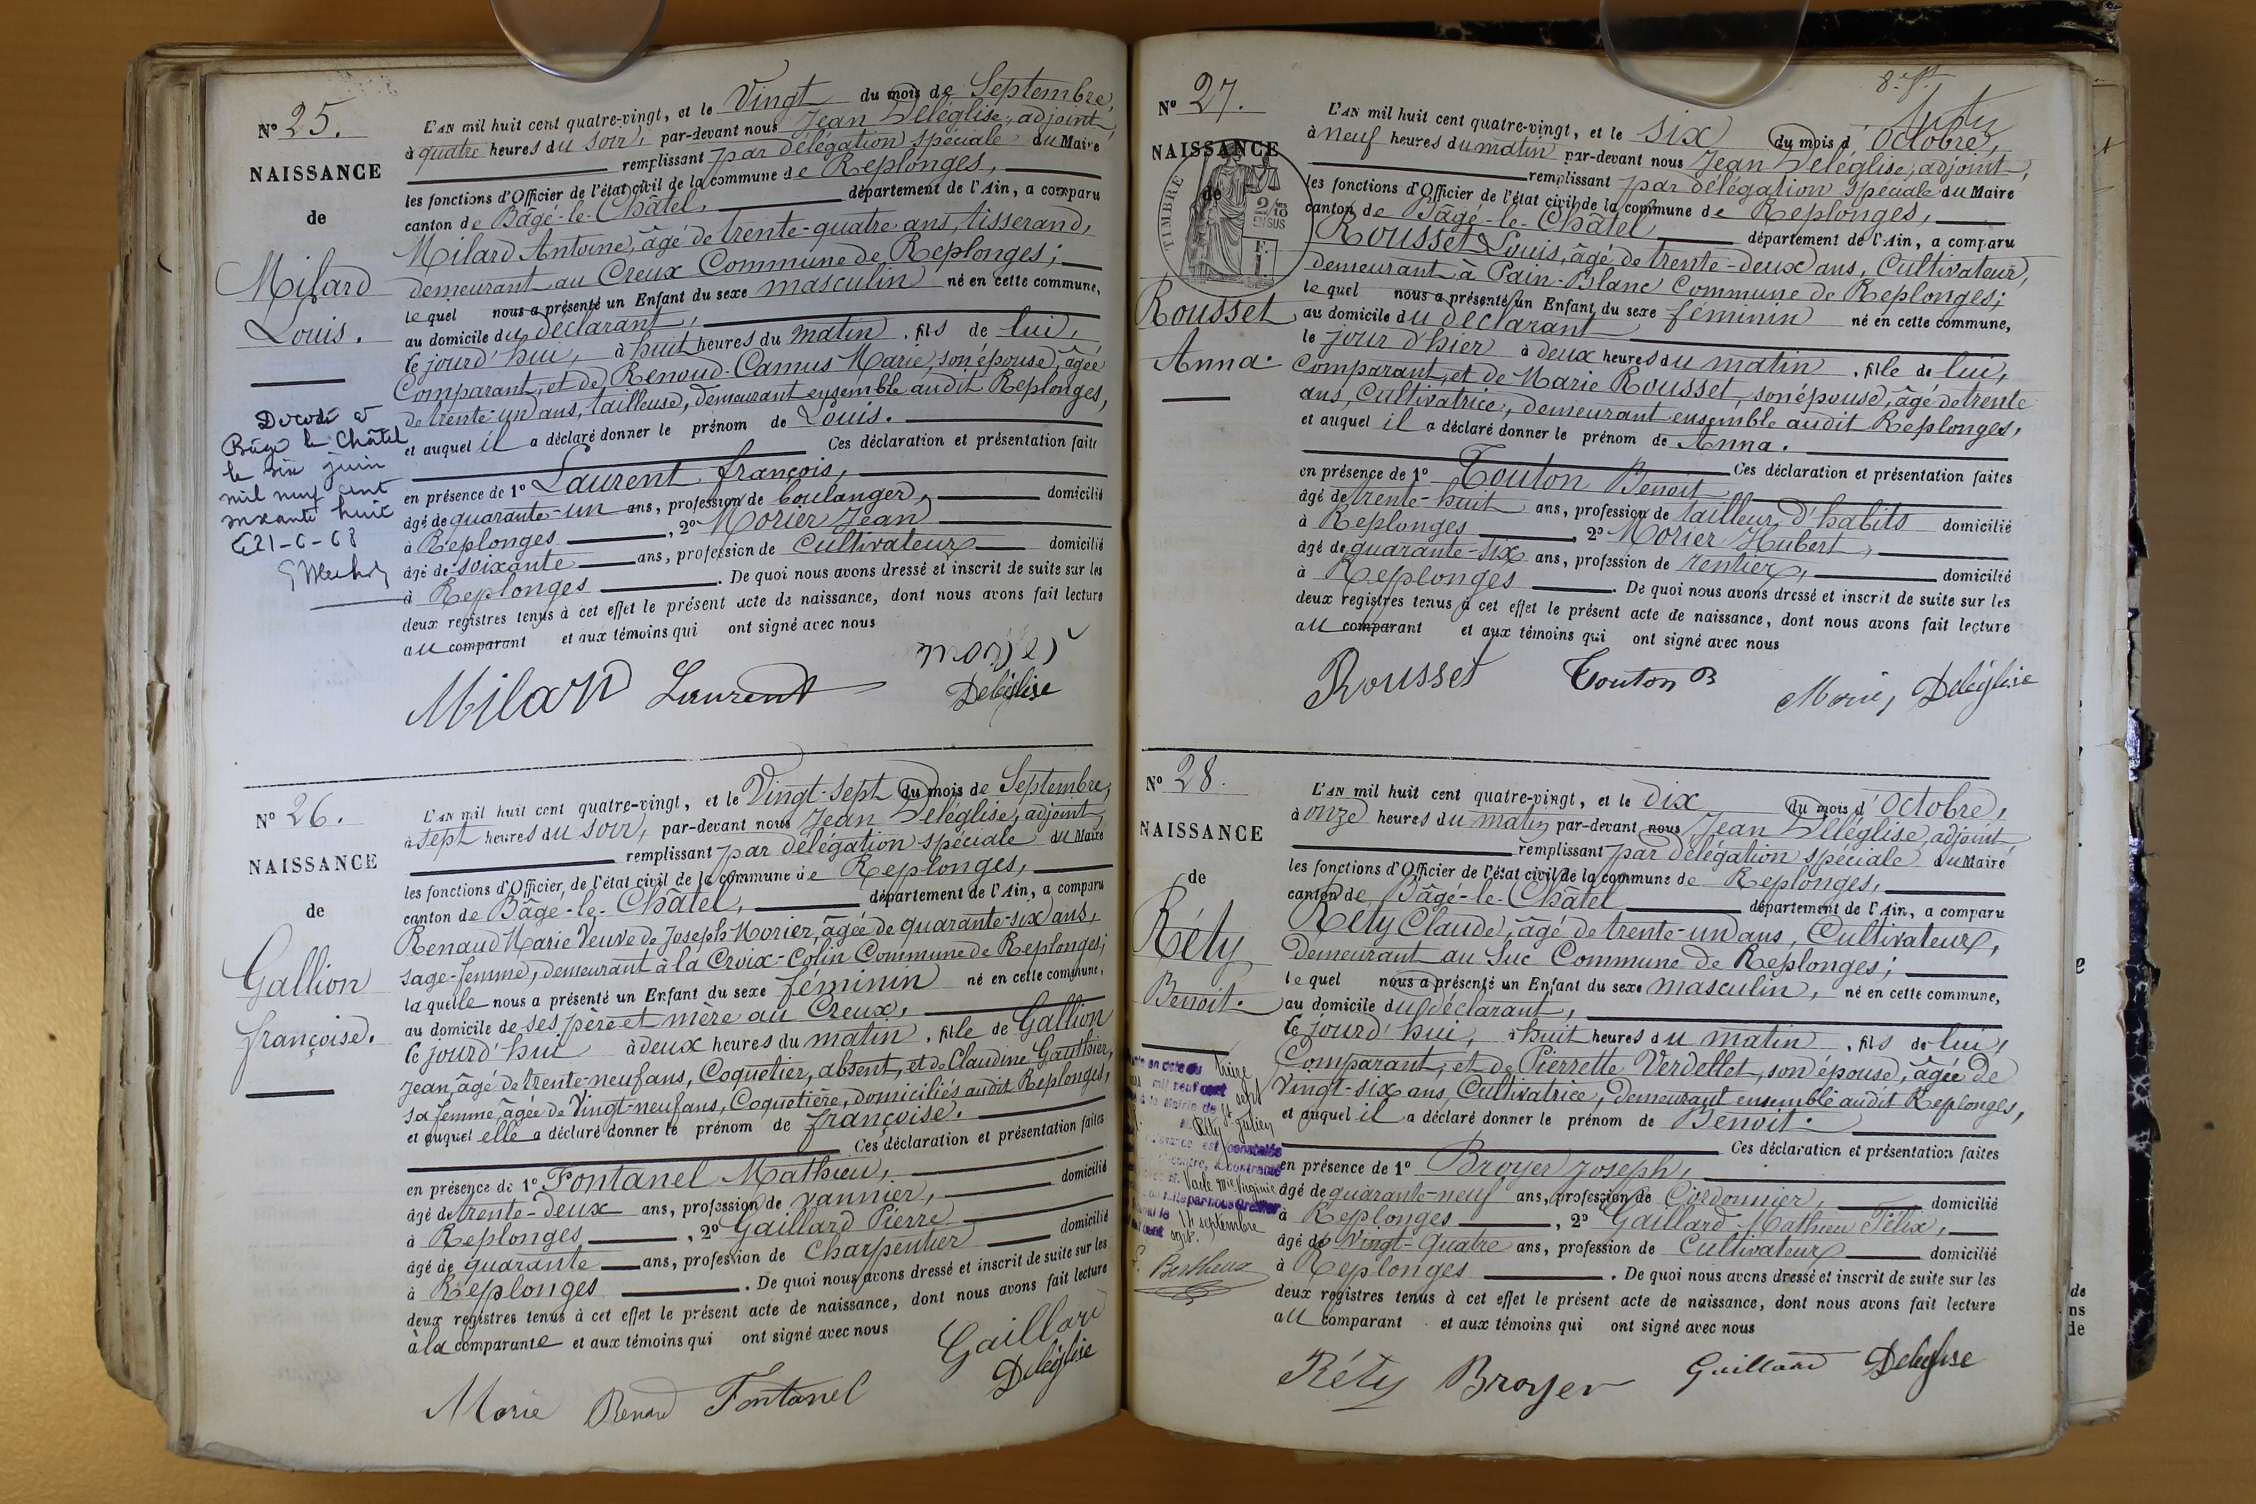 N° 25.
NAISSANCE
de
Milard
Louis.
Décédé à
Bâgé le Châtel
le six juin
mil neuf cent
soixante huit
21-6-68
L'AN mil huit cent quatre-vingt, et le Vingt du mois de Septembre,
à quatre heures du soir, par-devant nous Jean Deléglise, adjoint,
remplissant par délégation spéciale du Maire
les fonctions d'Officier de l'état civil de la commune de Replonges,
canton de Bâgé-le-Châtel, département de l'Ain, a comparu
Milard Antoine, âgé de trente-quatre ans, tisserand,
demeurant au Creux Commune de Replonges;
lequel nous a présenté un Enfant du sexe masculin né en cette commune,
au domicile du déclarant,
ce jourd'hui, à huit heures du matin, fils de lui,
Comparant, et de Renoud-Camus Marie, son épouse, âgée
de trente-un ans, tailleuse, demeurant ensemble audit Replonges,
et auquel il a déclaré donner le prénom de Louis.
Ces déclaration et présentation faites
en présence de 1° Laurent françois,
âgé de quarante-un ans, profession de boulanger, domicilié
à Replonges, 2° Morier Jean
âgé de soixante ans, profession de Cultivateur domicilié
à Replonges. De quoi nous avons dressé et inscrit de suite sur les
deux registres tenus à cet effet le présent acte de naissance, dont nous avons fait lecture
au comparant et aux témoins qui ont signé avec nous
Milard Laurent morier
Deléglise
N° 26.
NAISSANCE
de
Gallion
françoise.
L'AN mil huit cent quatre-vingt, et le Vingt-sept du mois de Septembre,
à sept heures du soir, par-devant nous Jean Deléglise, adjoint,
remplissant par délégation spéciale du Maire
les fonctions d'Officier de l'état civil de la commune de Replonges,
canton de Bâgé-le-Châtel, département de l'Ain, a comparu
Renaud Marie Veuve de Joseph Morier, âgée de quarante-six ans,
sage-femme, demeurant à la Croix-Colin Commune de Replonges;
laquelle nous a présenté un Enfant du sexe féminin né en cette commune,
au domicile de ses père et mère au Creux,
ce jourd'hui à deux heures du matin, fille de Gallion
Jean, âgé de trente-neuf ans, Coquetier, absent, et de Claudine Gauthier,
sa femme, âgée de Vingt-neuf ans, Coquetière, domiciliés audit Replonges,
et auquel elle a déclaré donner le prénom de françoise.
Ces déclaration et présentation faites
en présence de 1° Fontanel Mathieu,
âgé de trente-deux ans, profession de vannier, domicilié
à Replonges, 2° Gaillard Pierre
âgé de quarante ans, profession de Charpentier domicilié
à Replonges. De quoi nous avons dressé et inscrit de suite sur les
deux registres tenus à cet effet le présent acte de naissance, dont nous avons fait lecture
à la comparante et aux témoins qui ont signé avec nous
Gaillard
Deléglise
Marie Renard Fontanel
8e ft
N° 27.
NAISSANCE
de
TIMBRE
2/10 EN SUS
F. 1.
Rousset
Anna.
L'AN mil huit cent quatre-vingt, et le six du mois d'Octobre,
à neuf heures du matin par-devant nous Jean Deléglise, adjoint,
remplissant par délégation spéciale du Maire
les fonctions d'Officier de l'état civil de la commune de Replonges,
canton de Bâgé-le-Châtel département de l'Ain, a comparu
Rousset Louis, âgé de trente-deux ans, Cultivateur,
demeurant à Pain-Blanc Commune de Replonges;
lequel nous a présenté un Enfant du sexe féminin né en cette commune,
au domicile du déclarant
le jour d'hier à deux heures du matin, fille de lui,
Comparant, et de Marie Rousset, son épouse, âgé de trente
ans, Cultivatrice, demeurant ensemble audit Replonges,
et auquel il a déclaré donner le prénom de Anna.
Ces déclaration et présentation faites
en présence de 1° Touton Benoit
âgé de trente-huit ans, profession de tailleur d'habits domicilié
à Replonges, 2° Morier Hubert,
âgé de quarante-six ans, profession de rentier, domicilié
à Replonges. De quoi nous avons dressé et inscrit de suite sur les
deux registres tenus à cet effet le présent acte de naissance, dont nous avons fait lecture
au comparant et aux témoins qui ont signé avec nous
Rousset Touton B Morier Deléglise
N° 28.
NAISSANCE
de
Réty
Benoit.
treize
mil neuf cent sept
la Mairie de St
Julien
est constatée
contracté
Vacle Mie Virginie
par nous Greffier
le 14 septembre
cent sept.
Berthaud
L'AN mil huit cent quatre-vingt, et le dix du mois d'Octobre,
à onze heures du matin par-devant nous Jean Deléglise, adjoint,
remplissant par délégation spéciale du Maire
les fonctions d'Officier de l'état civil de la commune de Replonges,
canton de Bâgé-le-Châtel département de l'Ain, a comparu
Réty Claude, âgé de trente-un ans, Cultivateur,
demeurant au Suc Commune de Replonges;
lequel nous a présenté un Enfant du sexe masculin, né en cette commune,
au domicile du déclarant,
ce jourd'hui, à huit heures du matin, fils de lui,
Comparant, et de Pierrette Verdellet, son épouse, âgée de
Vingt-six ans, Cultivatrice, demeurant ensemble audit Replonges,
et auquel il a déclaré donner le prénom de Benoit.
Ces déclaration et présentation faites
en présence de 1° Broyer Joseph,
âgé de quarante-neuf ans, profession de Cordonnier, domicilié
à Replonges, 2° Gaillard Mathieu Félix,
âgé de Vingt-quatre ans, profession de Cultivateur domicilié
à Replonges. De quoi nous avons dressé et inscrit de suite sur les
deux registres tenus à cet effet le présent acte de naissance, dont nous avons fait lecture
au comparant et aux témoins qui ont signé avec nous
Réty Broyer Gaillard Deléglise